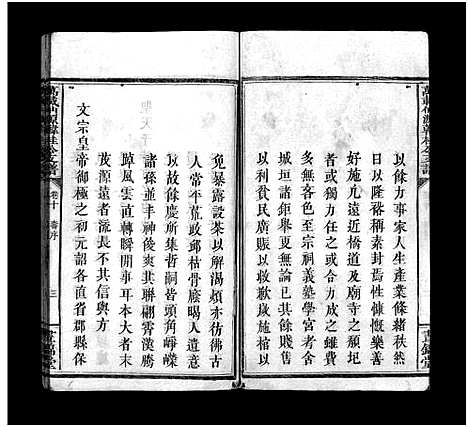 以餘力事家人生產業條緒秩然
已而以隆裕稱素封焉性慷慨樂善
好施凡遠近橋道及廟寺之頹圯
者或獨力任之或合力成之雖費
多無吝色至宗祠義塾學宮考舍
城垣諸鉅舉更無論已其餘賤售
以利貧民廣賑以收歉歲施棺以
免暴露設茶以解渴煩亦彷彿古
人常平葺政邱枯骨廕暍人遺意
以故餘慶所集哲嗣皆頭角崢嶸
諸孫並丰神俊爽其聯翩霄漢騰
踔風雲直轉瞬間事耳本大者末
茂源遠者流長不其信與方
文宗皇帝御極之初元詔各直省郡縣保
卷十 壽序
三